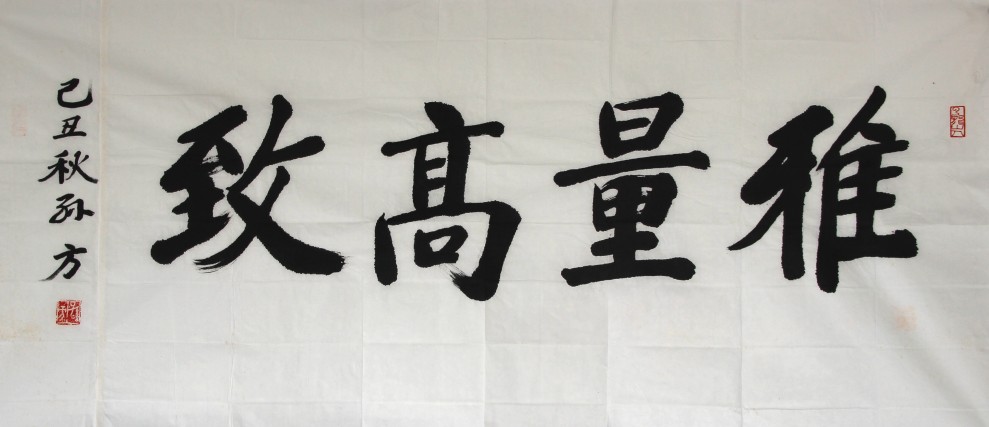 雅量高致
己丑秋孙方